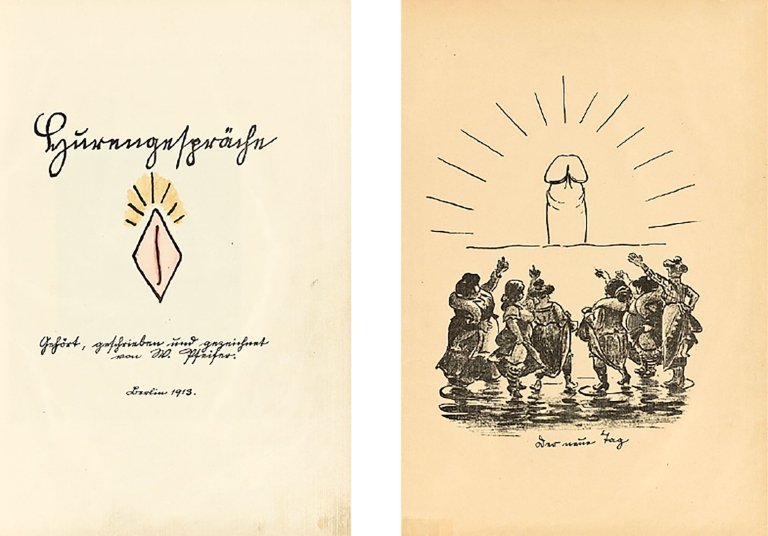 Hurengespräche
Gehört, geschrieben und gezeichnet
von W. Pfeifer.
Berlin 1913.
Der neue Tag